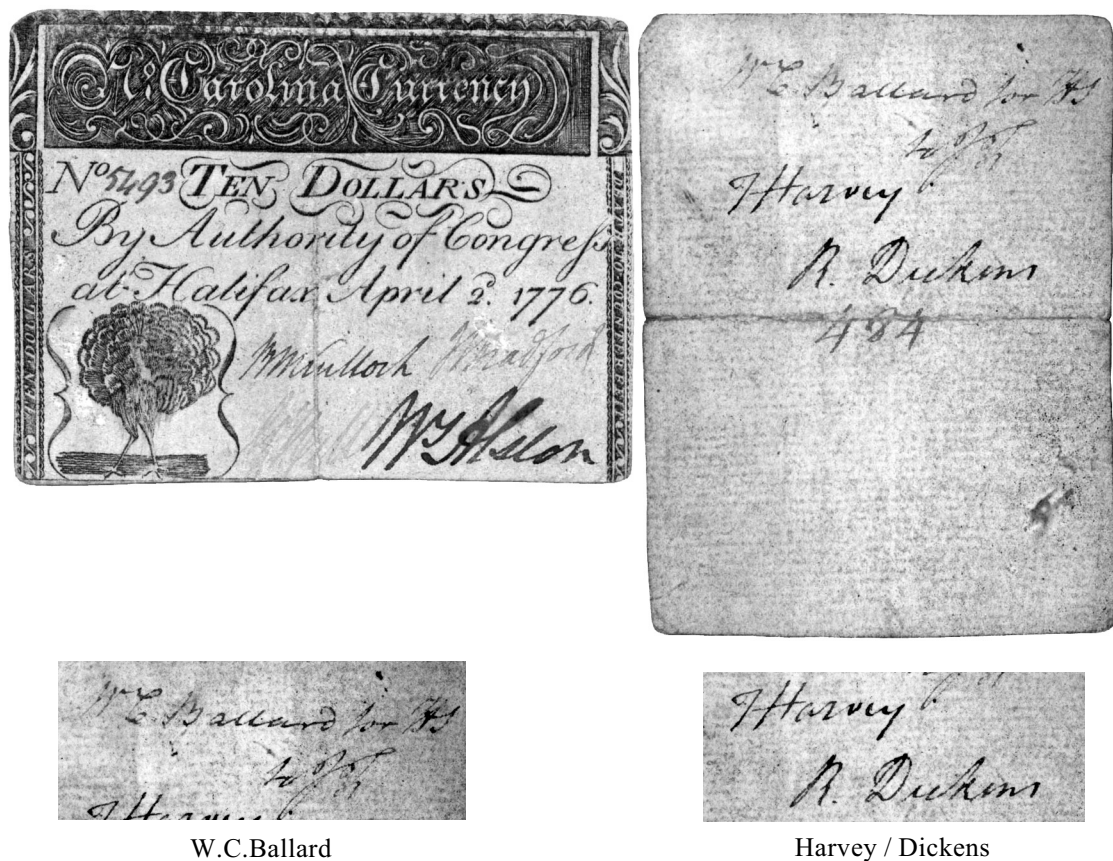 No. Carolina Currency
No 5493 TEN DOLLARS
By Authority of Congress
at Halifax April 2d. 1776.
WMcCulloch WBradford
WGAlston
W C Ballard for HS
to
JHarvey
R. Dickens
484
W C Ballard for HS
to
JHarvey
R. Dickens
W.C.Ballard
Harvey / Dickens